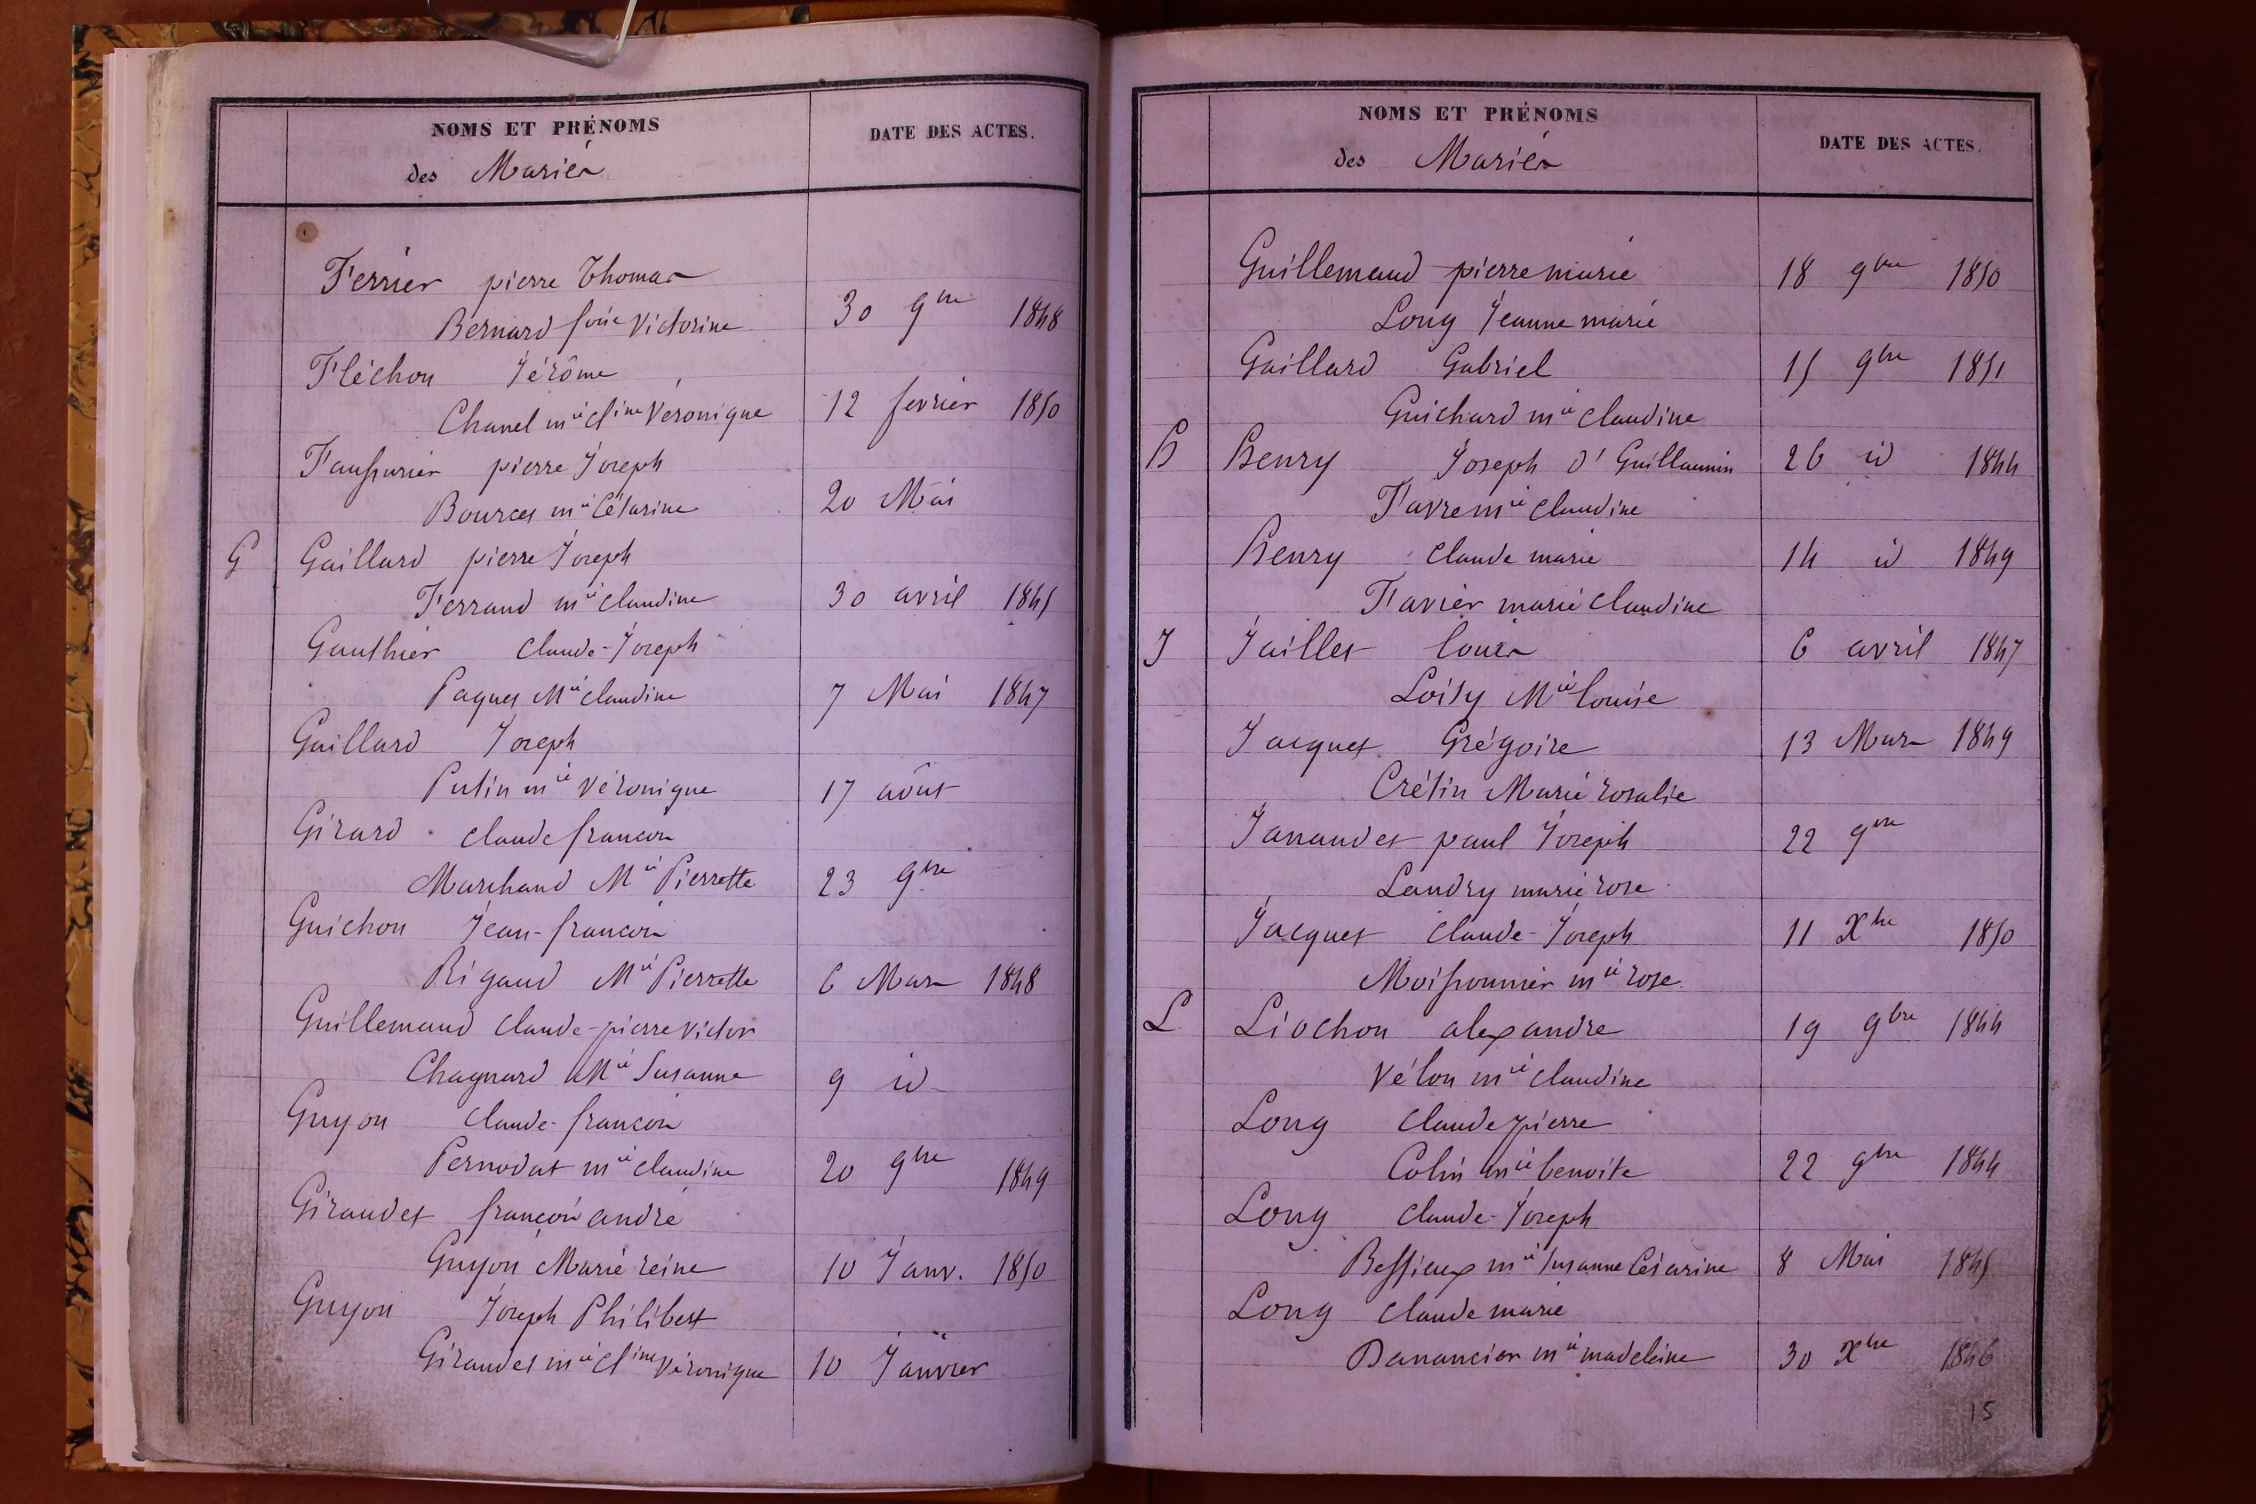 NOMS ET PRÉNOMS
des Mariés
DATE DES ACTES.
Ferrier pierre Thomas
Bernard foise Victorine 30 9bre 1848
Fléchon Jérôme
Chanel mie Cline Véronique 12 fevrier 1850
Faussurier pierre Joseph
Bources mie Césarine 20 Mai
G Gaillard pierre Joseph
Ferrand mie Claudine 30 avril 1845
Gauthier Claude-Joseph
Paques Mie Claudine 7 Mai 1847
Gaillard Joseph
Putin mie Véronique 17 août
Girard claude françois
Marchand Mie Pierrette 23 9bre
Guichon Jean-françois
Rigaud Mie Pierrette 6 Mars 1848
Guillemaud Claude-pierre Victor
Chagnard Mie Susanne 9 id
Guyon Claude-françois
Pernodat mie Claudine 20 9bre 1849
Giraudet françois andré
Guyon Marie reine 10 Janv. 1850
Guyon Joseph Philibert
Giraudet mie Cline Véronique 10 Janvier
NOMS ET PRÉNOMS
des Mariés
DATE DES ACTES.
Guillemaud pierre marie 18 9bre 1850
Long Jeanne marie
Gaillard Gabriel 15 9bre 1851
Guichard mie Claudine
H Henry Joseph d'Guillaumin 26 id 1844
Favre mie Claudine
Henry Claude marie 14 id 1849
Favier marie Claudine
J Jaillet louis 6 avril 1847
Loisy Mie louise
Jacquet Grégoire 13 Mars 1849
Crétin Marie rosalie
Janaudet paul Joseph 22 9bre
Landry marie rose
Jacquet Claude-Joseph 11 Xbre 1850
Moissonnier mie rose
L Liochon alexandre 19 9bre 1844
Vélon mie Claudine
Long Claude pierre
Colin mie benoite 22 9bre 1844
Long Claude-Joseph
Bessieux mie Susanne Césarine 8 Mai 1845
Long Claude marie
Danancier mie madeleine 30 Xbre 1846
15